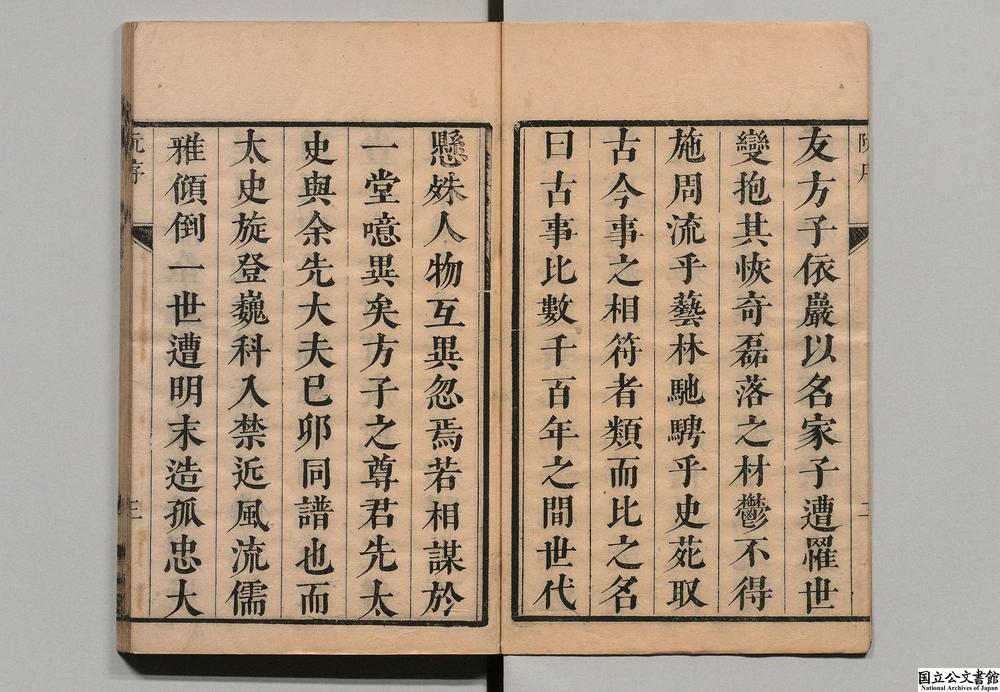 友方子依巖以名家子遭罹世
變抱其恢奇磊落之材鬱不得
施周流乎藝林馳騁乎史苑取
古今事之相符者類而比之名
曰古事比數千百年之間世代
懸姝人物互異忽焉若相謀於
一堂噫異矣方子之尊君先太
史與余先大夫已卯同譜也而
太史旋登巍科入禁近風流儒
雅傾倒一世遭明末造孤忠大
阮序
三
国立公文書館
National Archives of Japan